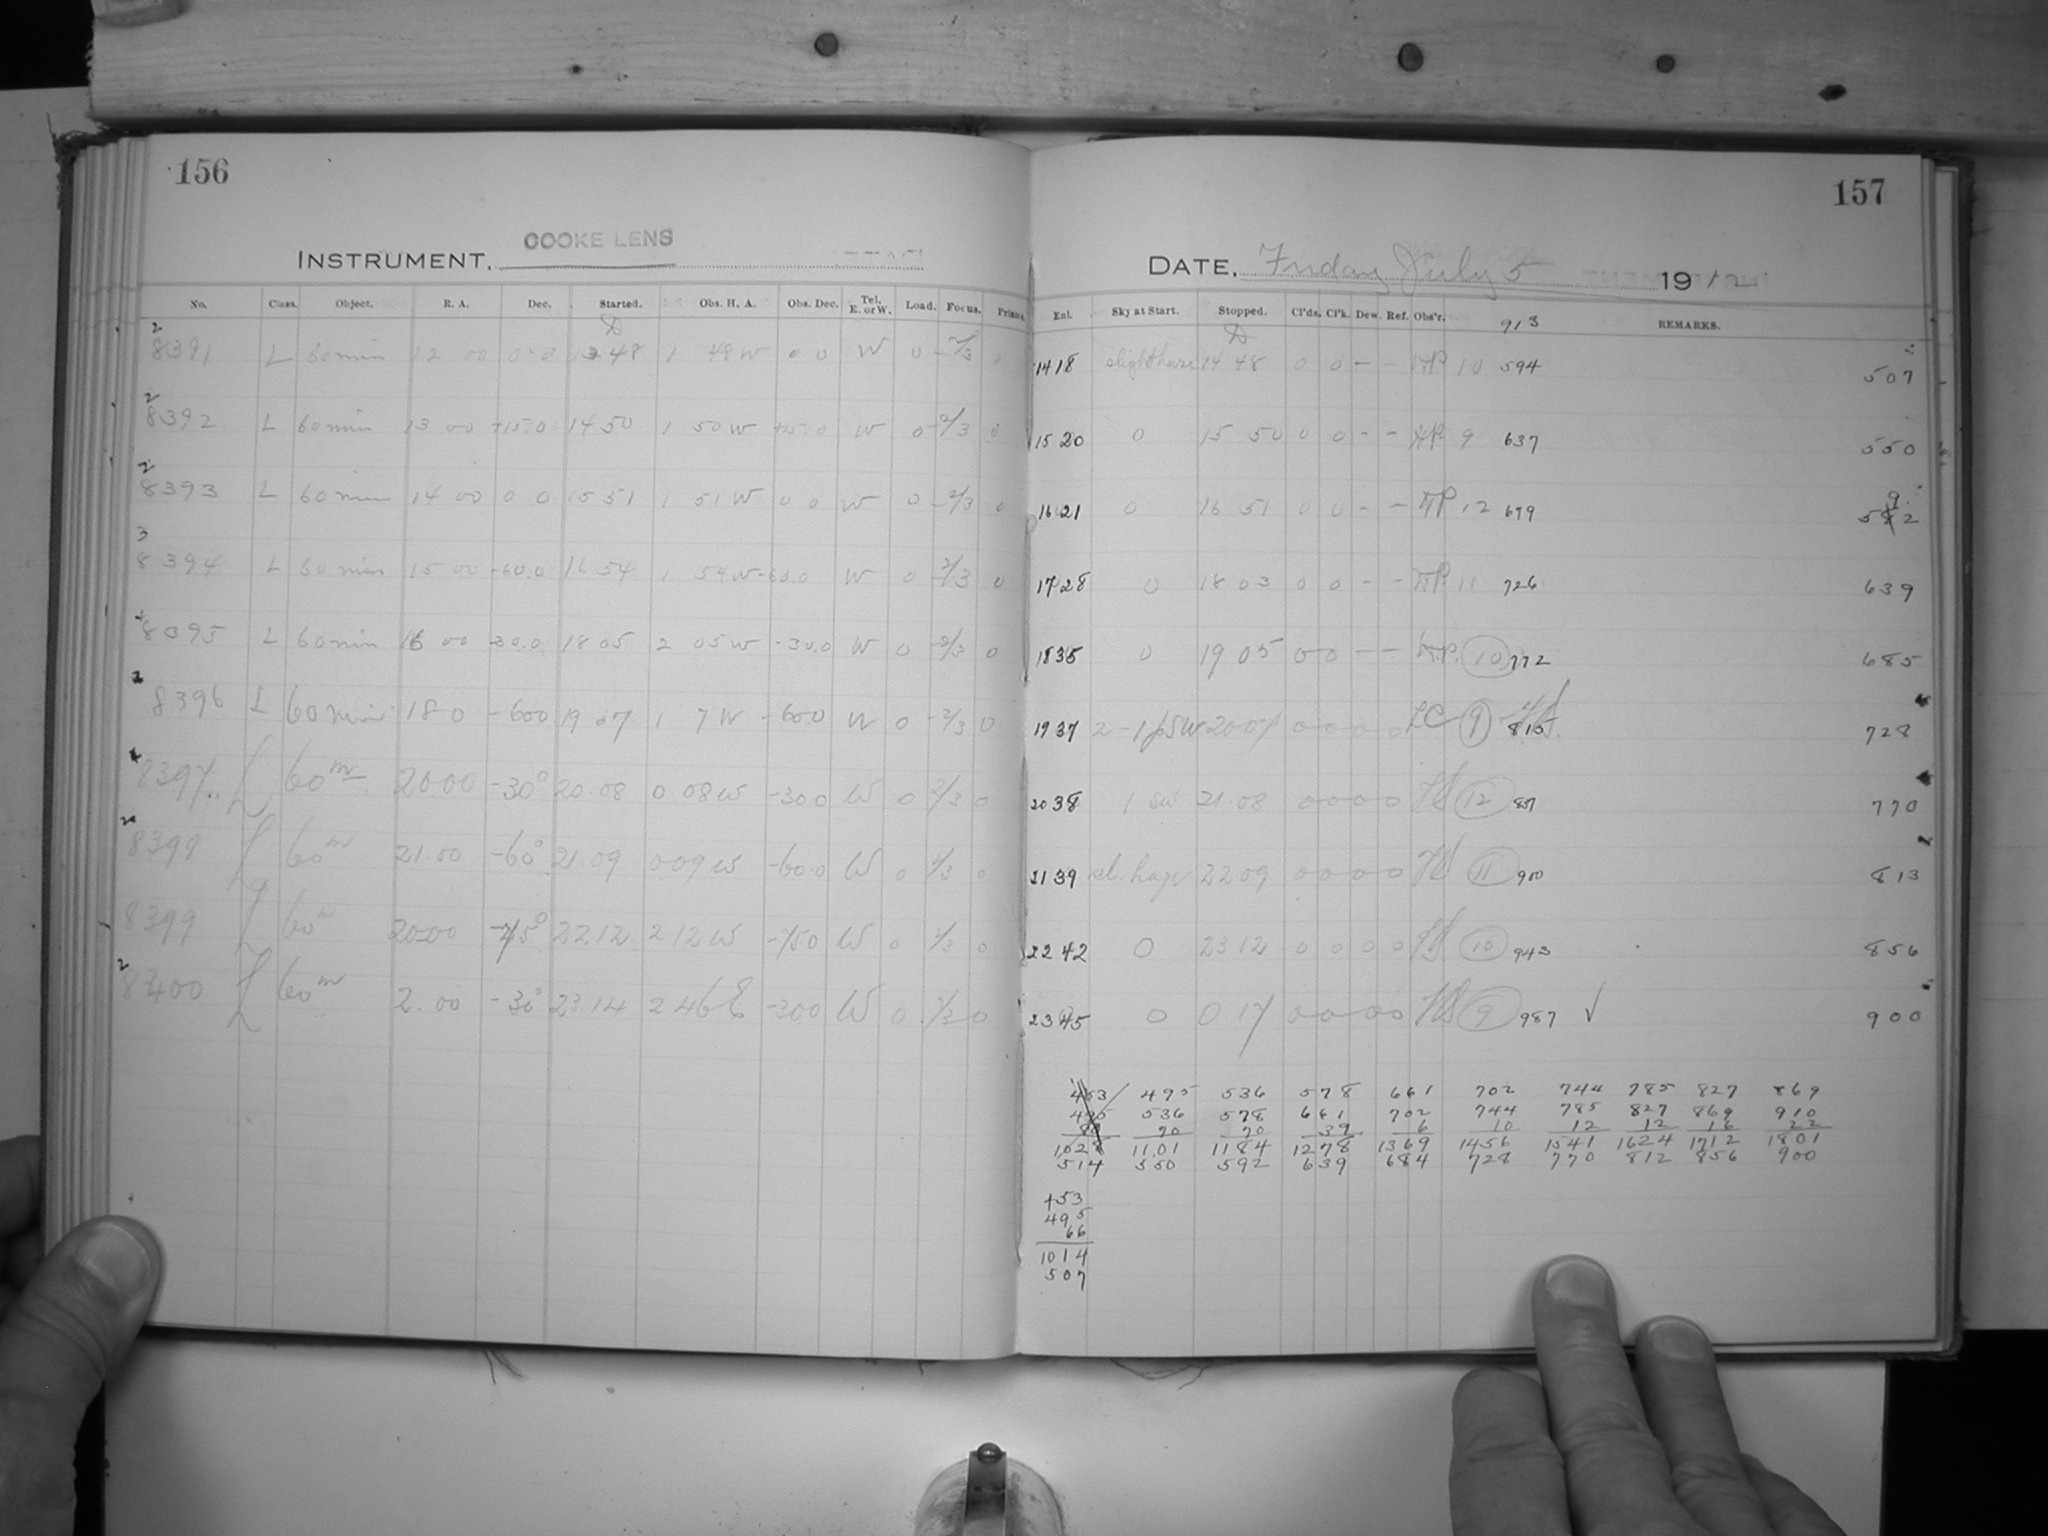 156
COOKE LENS
INSTRUMENT.
No. Class. Object. R. A. Dec. Started. Obs. H. A. Obs. Dec. Tel. E. or W. Load. Focus. Prism.
2
8391 L 60 min 12 00 0 0 13 48 1 48 W 0 0 W 0 -2/3 0
2
8392 L 60 min 13 00 +15.0 14 50 1 50 W +15.0 W 0 -2/3 0
2
8393 L 60 min 14 00 0 0 15 51 1 51 W 0 0 W 0 -2/3 0
3
8394 L 60 min 15 00 -60.0 16 54 1 54 W -60.0 W 0 -2/3 0
8395 L 60 min 16 00 -30.0 18 05 2 05 W -30.0 W 0 -2/3 0
8396 L 60 min 18 0 -600 19 07 1 7 W -600 W 0 -2/3 0
8397 L 60 m 20.00 -30° 20.08 0.08 W -300 W 0 2/3 0
8399 L 60 m 21.00 -60° 21.09 0 09 W -60.0 W 0 2/3 0
8399 L 60 m 20.00 -75° 22 12 2 12 W -750 W 0 2/3 0
2
8400 L 60 m 2.00 -30° 23.14 2 46 E -300 W 0 2/3 0
157
DATE, Friday July 5 1912
Enl. Sky at Start. Stopped. Cl'ds. Cl'k. Dew. Ref. Obs'r. 913 REMARKS.
14 18 slight haze 14 48 0 0 - - 10 594 507
15 20 0 15 50 0 0 - - 9 637 550
9
16 21 0 16 51 0 0 - - 12 679 582
17 28 0 18 03 0 0 - - 11 726 639
18 35 0 19 05 0 0 - - 10 772 685
19 37 2 - 1 SW 20 07 0 0 0 0 LC 9 815 728
20 38 1 SW 21.08 0 0 0 0 12 857 770
21 39 sl. haze 22 09 0 0 0 0 11 900 813
22 42 0 23 12 0 0 0 0 10 943 856
23 45 0 0.17 0 0 0 0 9 987 √ 900
453 495 536 578 661 702 744 785 827 869
495 536 578 661 702 744 785 827 869 910
80 70 70 39 6 10 12 12 16 22
1028 1101 1184 1278 1369 1456 1541 1624 1712 1801
514 550 592 639 684 728 770 812 856 900
453
495
66
1014
507